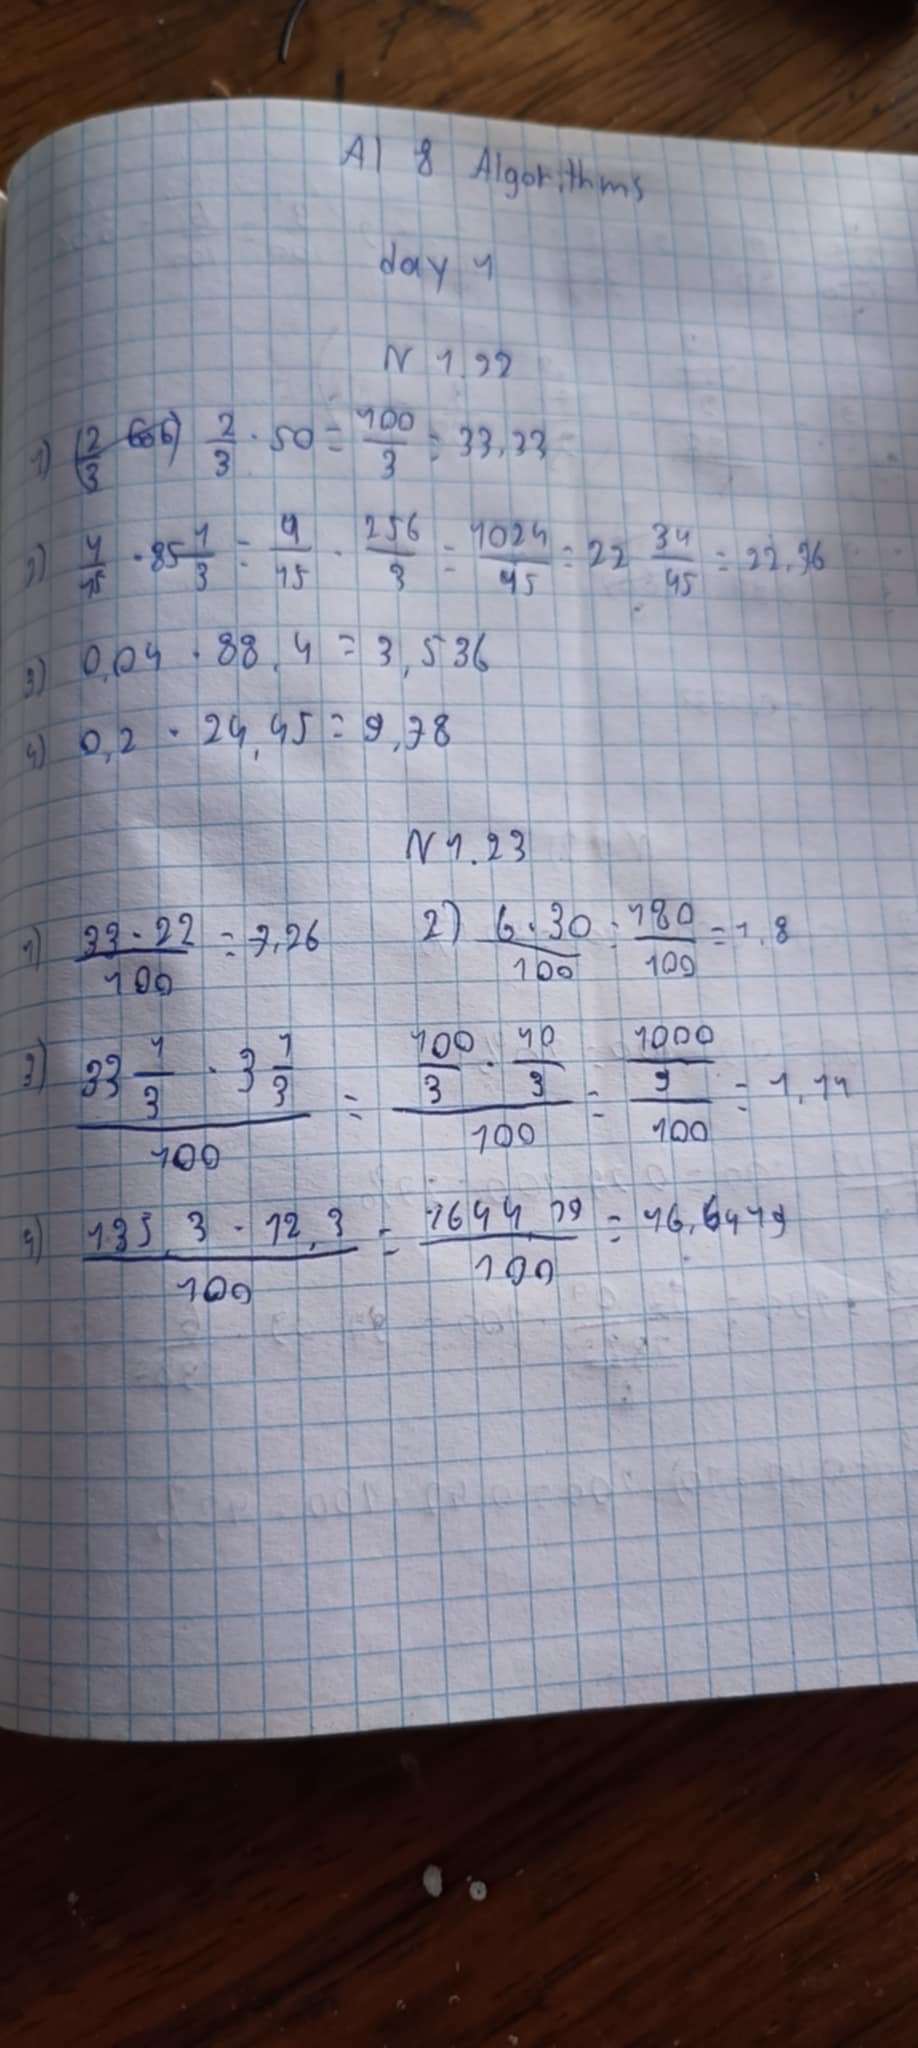 AI & Algorithms
day 1
N 1.22
1) 2/3 · 50 = 100/3 = 33,33
2) 4/15 · 85 1/3 = 4/15 · 256/3 = 1024/45 = 22 34/45 = 22,76
3) 0,04 · 88,4 = 3,536
4) 0,2 · 24,45 = 9,78
N 1.23
1) 33 · 22 / 100 = 7,26 2) 6 · 30 / 100 = 180/100 = 1,8
3) 33 1/3 · 3 1/3 / 100 = 100/3 · 10/3 / 100 = 1000/9 / 100 = 1,11
4) 135,3 · 12,3 / 100 = 1644,19 / 100 = 16,6419